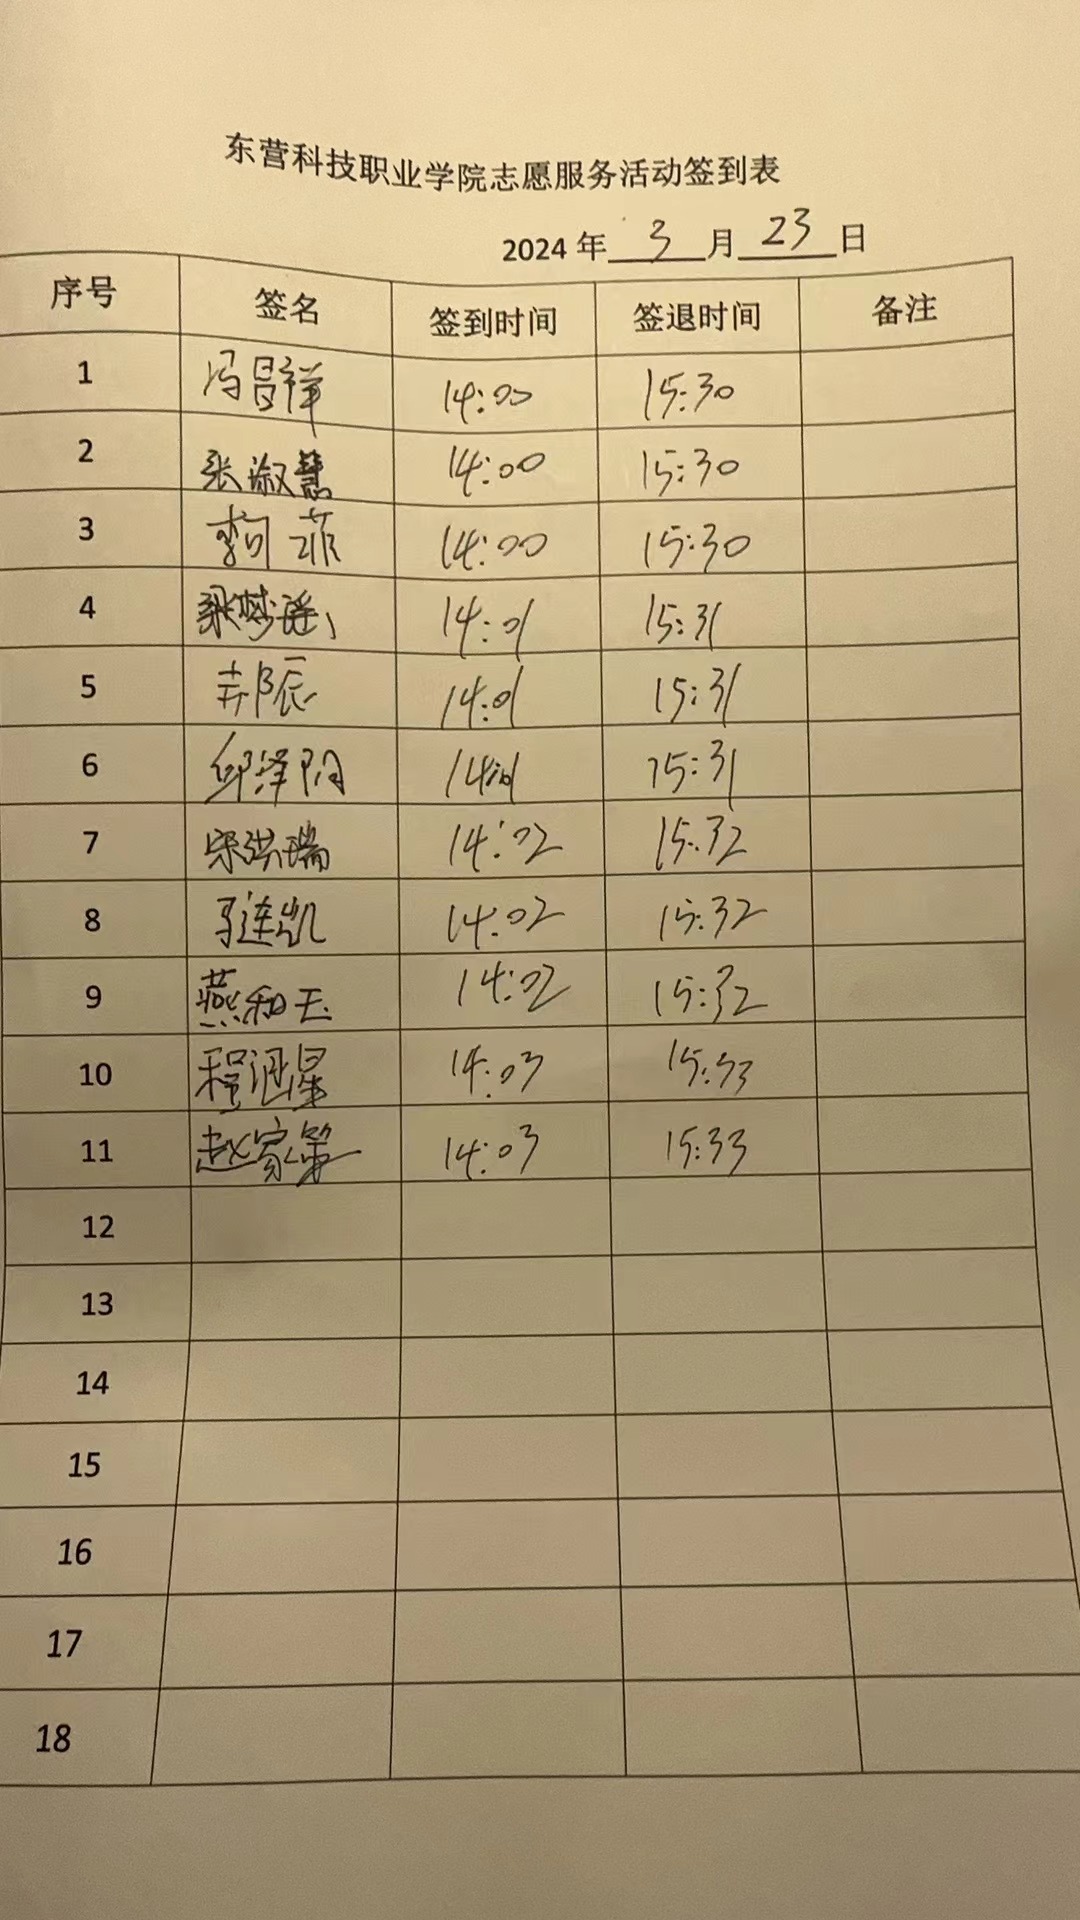 东营科技职业学院志愿服务活动签到表
2024年 3 月 23 日
序号 签名 签到时间 签退时间 备注
1 冯昌祥 14:00 15:30
2 张淑慧 14:00 15:30
3 菲 14:00 15:30
4 梁梦瑶 14:01 15:31
5 14:01 15:31
6 邱泽阳 14:01 15:31
7 宋洪瑞 14:02 15:32
8 马连凯 14:02 15:32
9 燕和玉 14:02 15:32
10 程星 14:03 15:33
11 赵家第 14:03 15:33
12
13
14
15
16
17
18